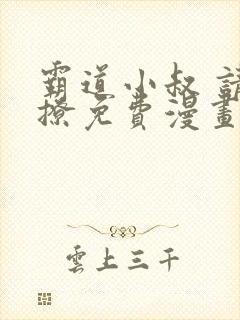 霸道小叔 請
撩免費漫畫
雲上三千